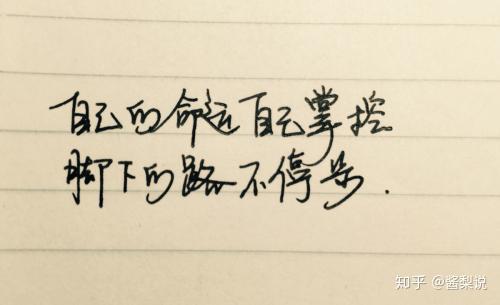 自己的命运自己掌控
脚下的路不停步.
知乎 @酱梨说